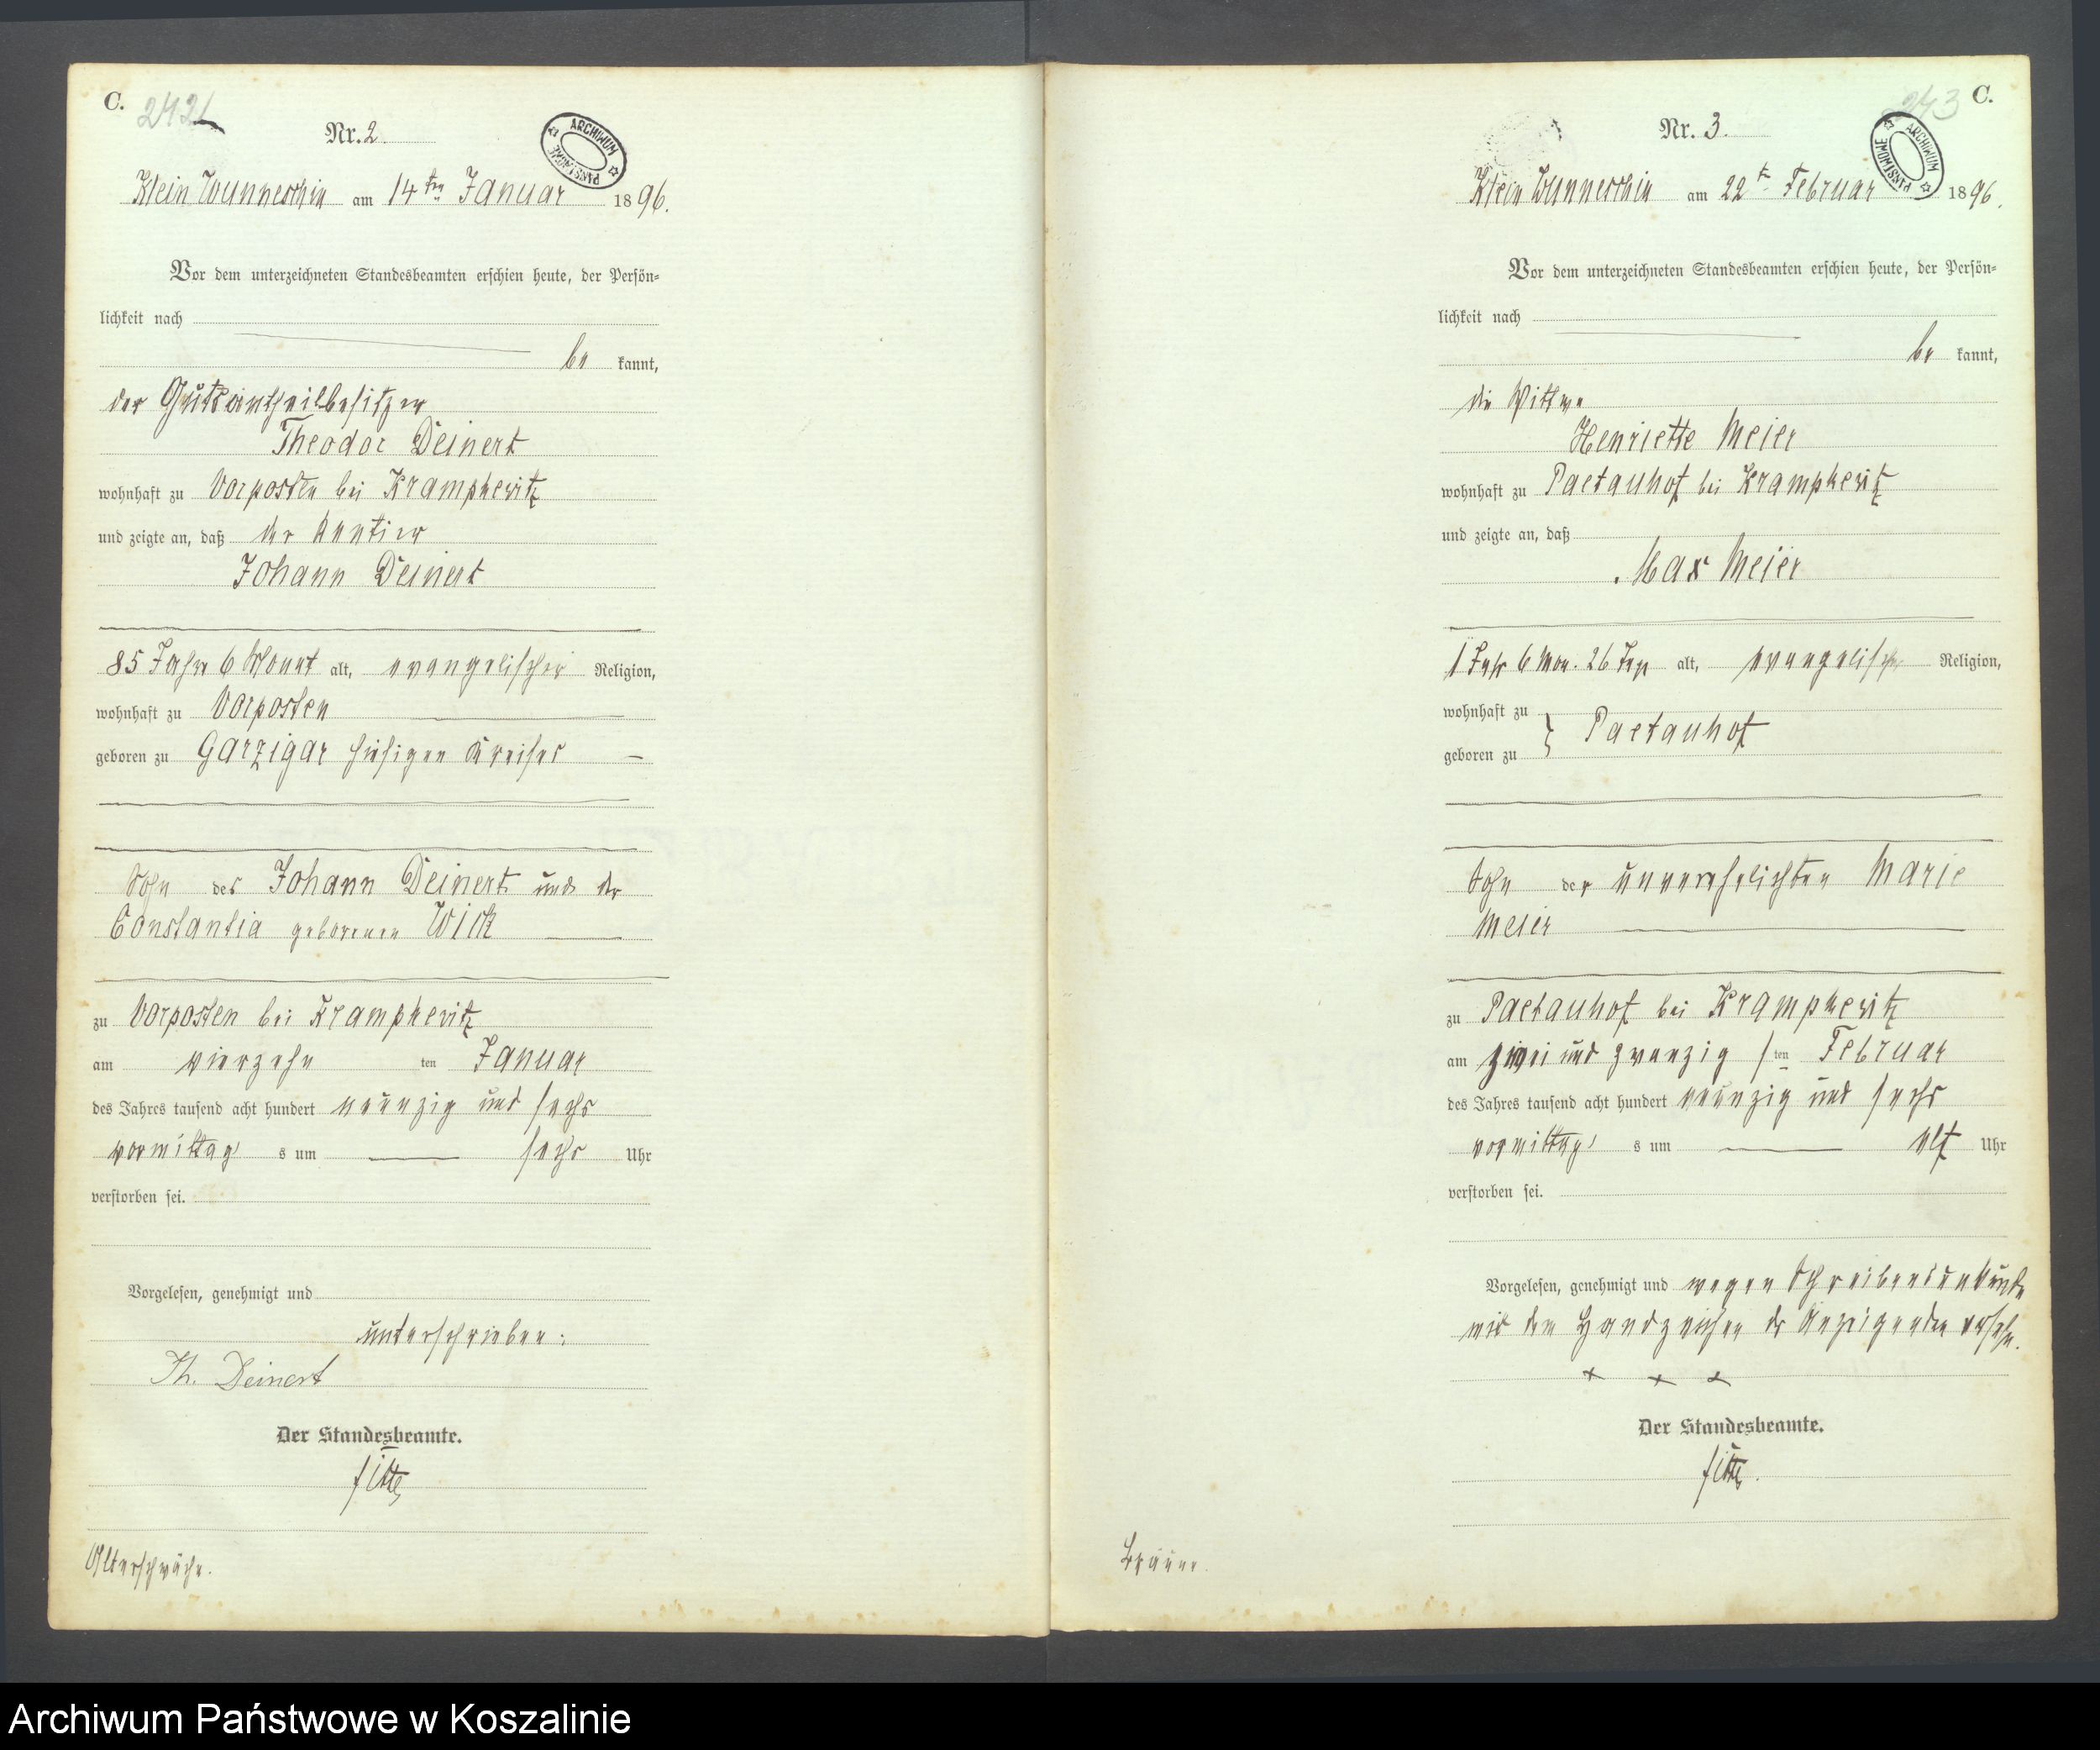 C.
242
Nr. 2.
ARCHIWUM PAŃSTWOWE
Klein Wunneschin am 14ten Januar 1896.
Vor dem unterzeichneten Standesbeamten erschien heute, der Persön-
lichkeit nach
be kannt,
der Gutsantheilbesitzer
Theodor Deinert
wohnhaft zu Vorposten bei Krampkewitz
und zeigte an, daß der Rentier
Johann Deinert
85 Jahre 6 Monat alt, evangelischer Religion,
wohnhaft zu Vorposten
geboren zu Garzigar hiesigen Kreises
Sohn des Johann Deinert und der
Constantia geborenen Wick
zu Vorposten bei Krampkewitz
am vierzehn ten Januar
des Jahres tausend acht hundert neunzig und sechs
vormittag s um sechs Uhr
verstorben sei.
Vorgelesen, genehmigt und
unterschrieben:
Th. Deinert
Der Standesbeamte.
Alterschwäche.
C.
243
Nr. 3.
ARCHIWUM PAŃSTWOWE
Klein Wunneschin am 22t Februar 1896.
Vor dem unterzeichneten Standesbeamten erschien heute, der Persön-
lichkeit nach
be kannt,
die Wittwe
Henriette Meier
wohnhaft zu Paetauhof bei Krampkewitz
und zeigte an, daß
Max Meier
1 Jahr 6 Mon. 26 Tage alt, evangelischer Religion,
wohnhaft zu
} Paetauhof
geboren zu
Sohn der unverehelichten Marie
Meier
zu Paetauhof bei Krampkewitz
am zwei und zwanzig sten Februar
des Jahres tausend acht hundert neunzig und sechs
vormittag s um elf Uhr
verstorben sei.
Vorgelesen, genehmigt und wegen Schreibensunkunde
mit dem Handzeichen der Anzeigenden versehn.
+ + +
Der Standesbeamte.
Bräune.
Archiwum Państwowe w Koszalinie